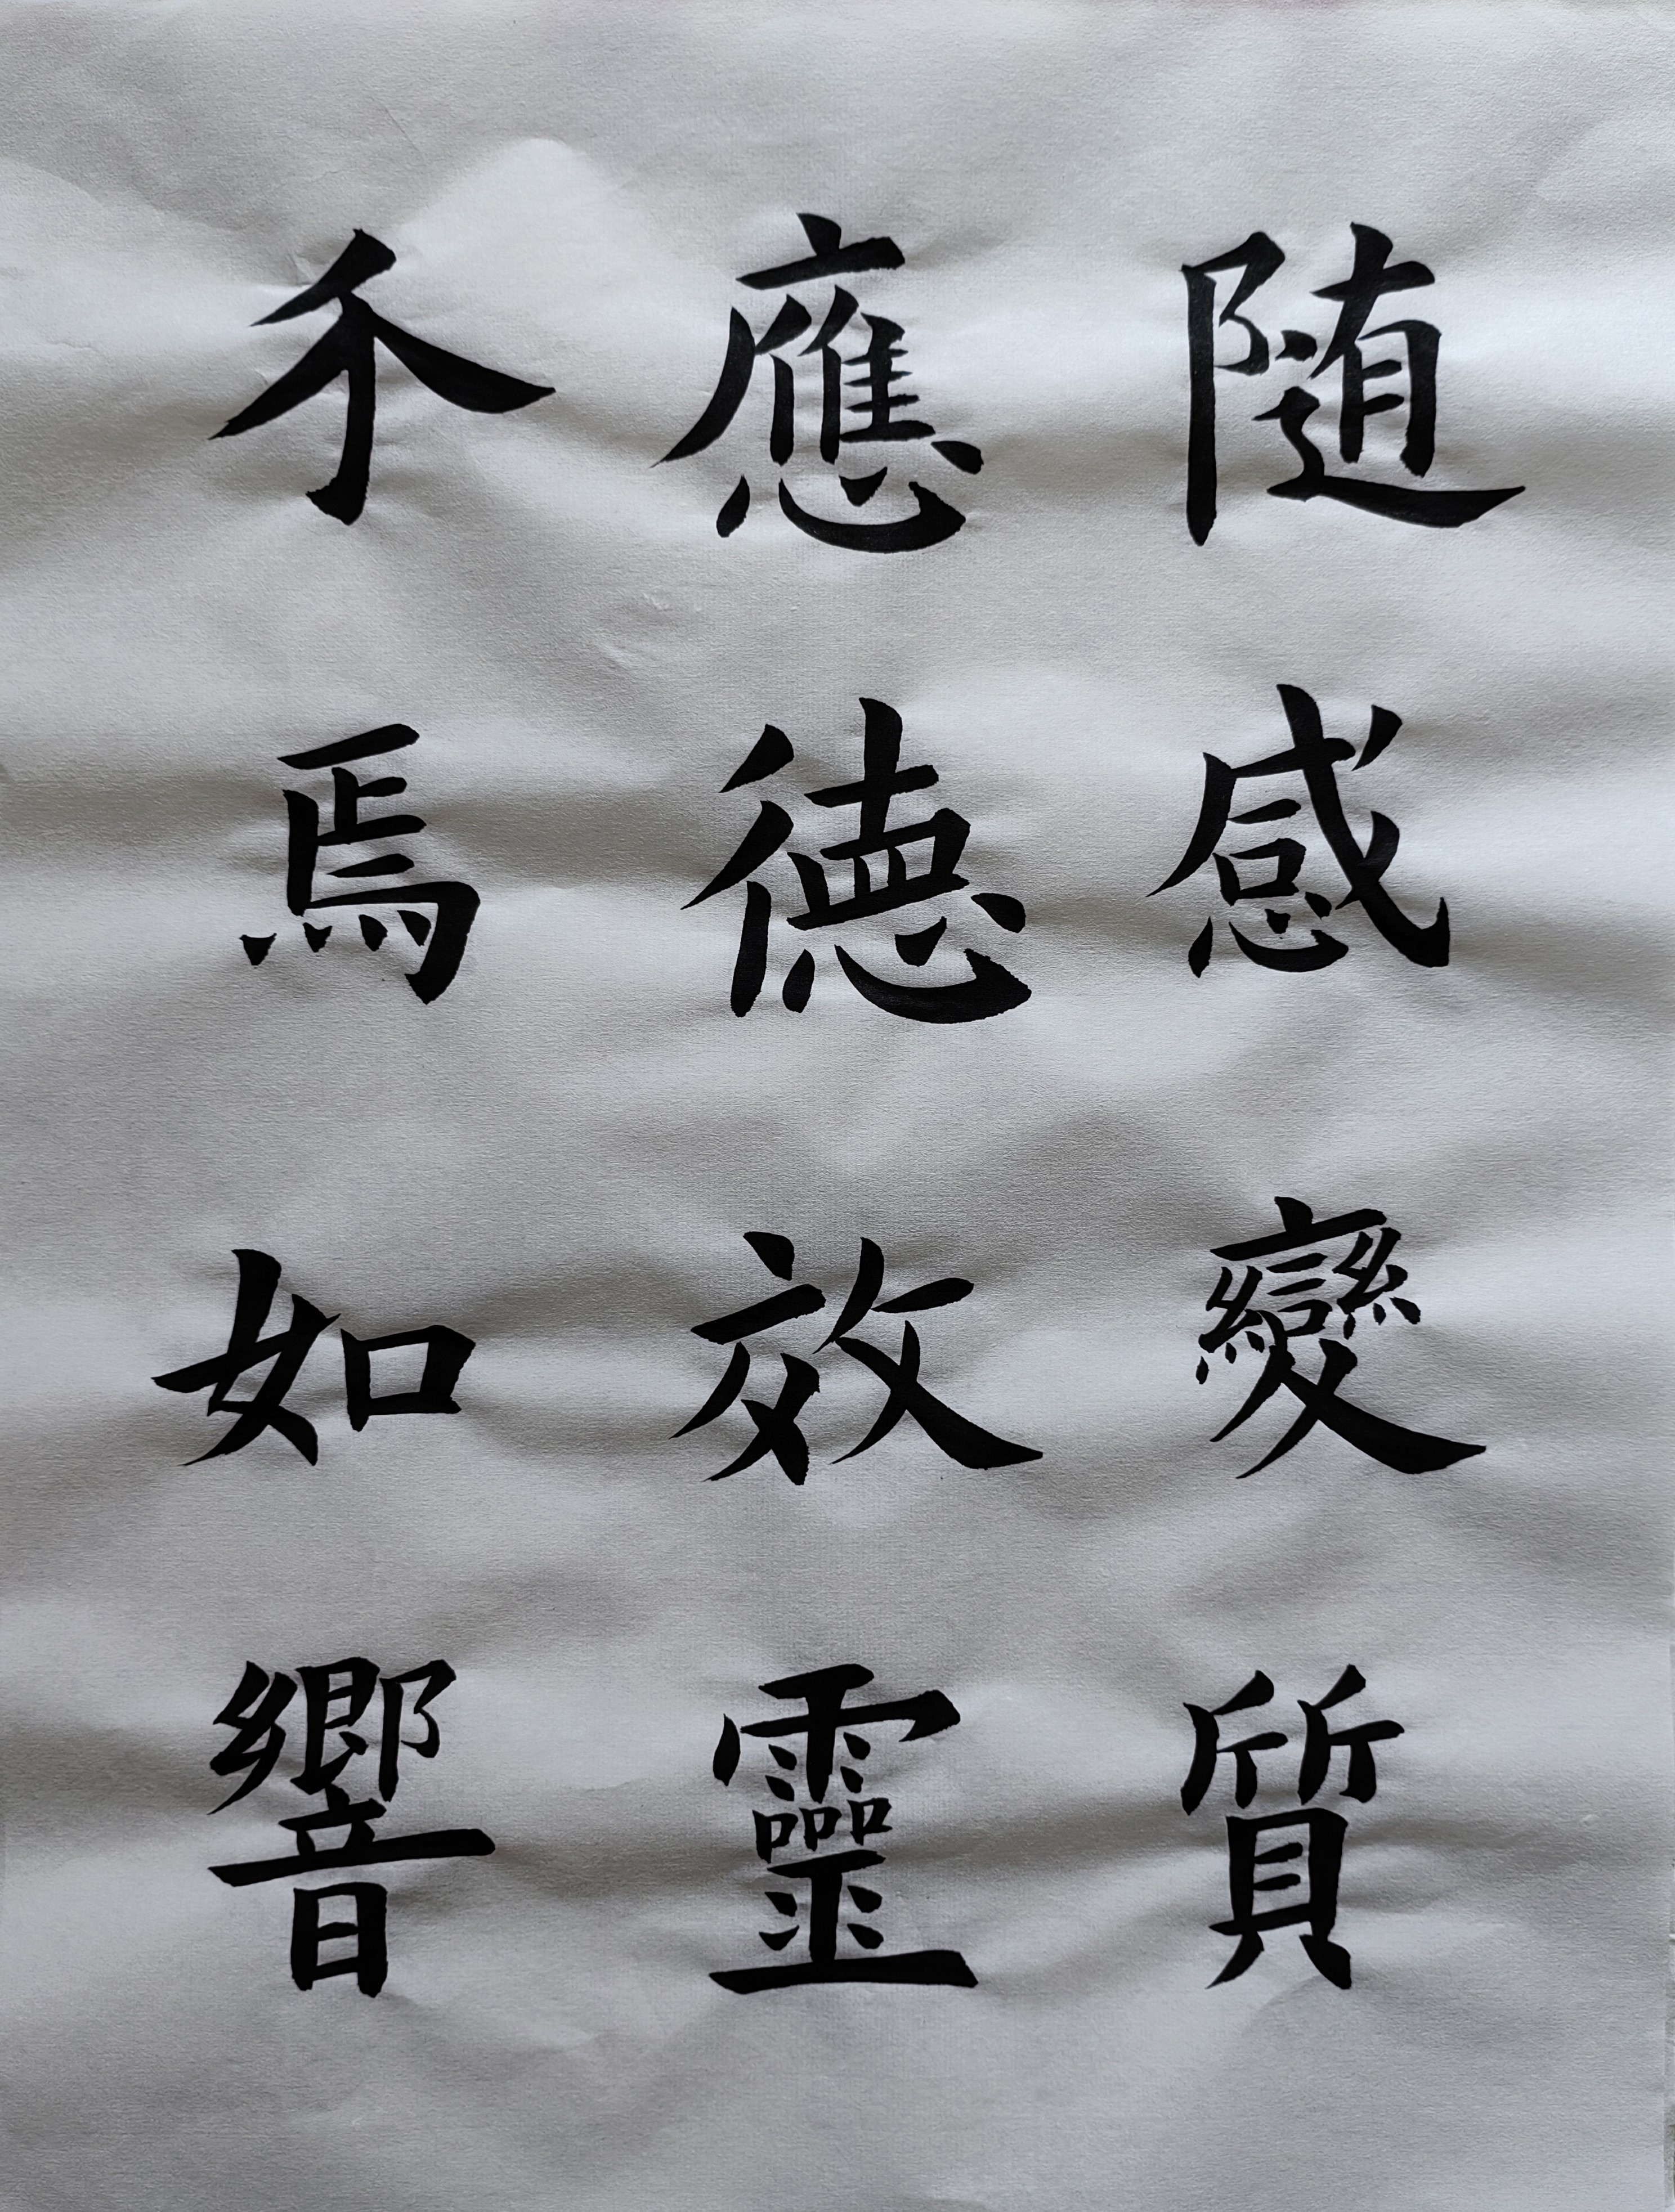 随感變質
應德效靈
介焉如響